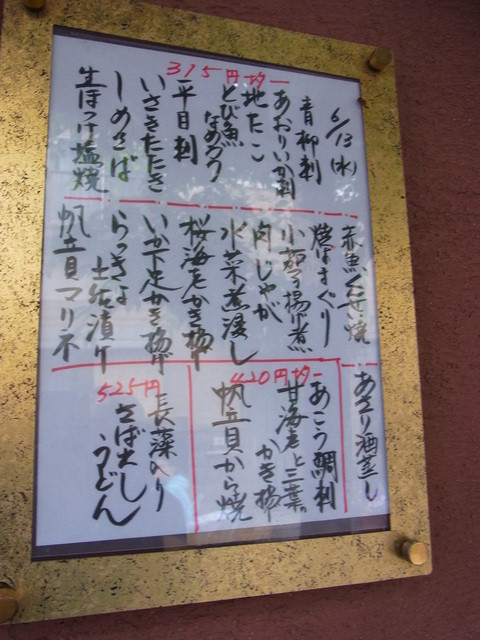 6/13(水)
315円均一
青柳刺
あおりいか刺
地たこ
とび魚
なめタク
平目刺
いさきたたき
しめさば
生ほっけ塩焼
赤魚くせ焼
焼はまぐり
小茄子揚げ煮
肉じゃが
水菜煮浸し
桜海老かき揚げ
いか下足かき揚げ
らっきょ
土佐漬け
帆立貝マリネ
あさり酒蒸し
420円均一
あこう鯛刺
甘海老と三葉
かき揚
帆立貝から焼
525円
長藻入り
さば出し
うどん